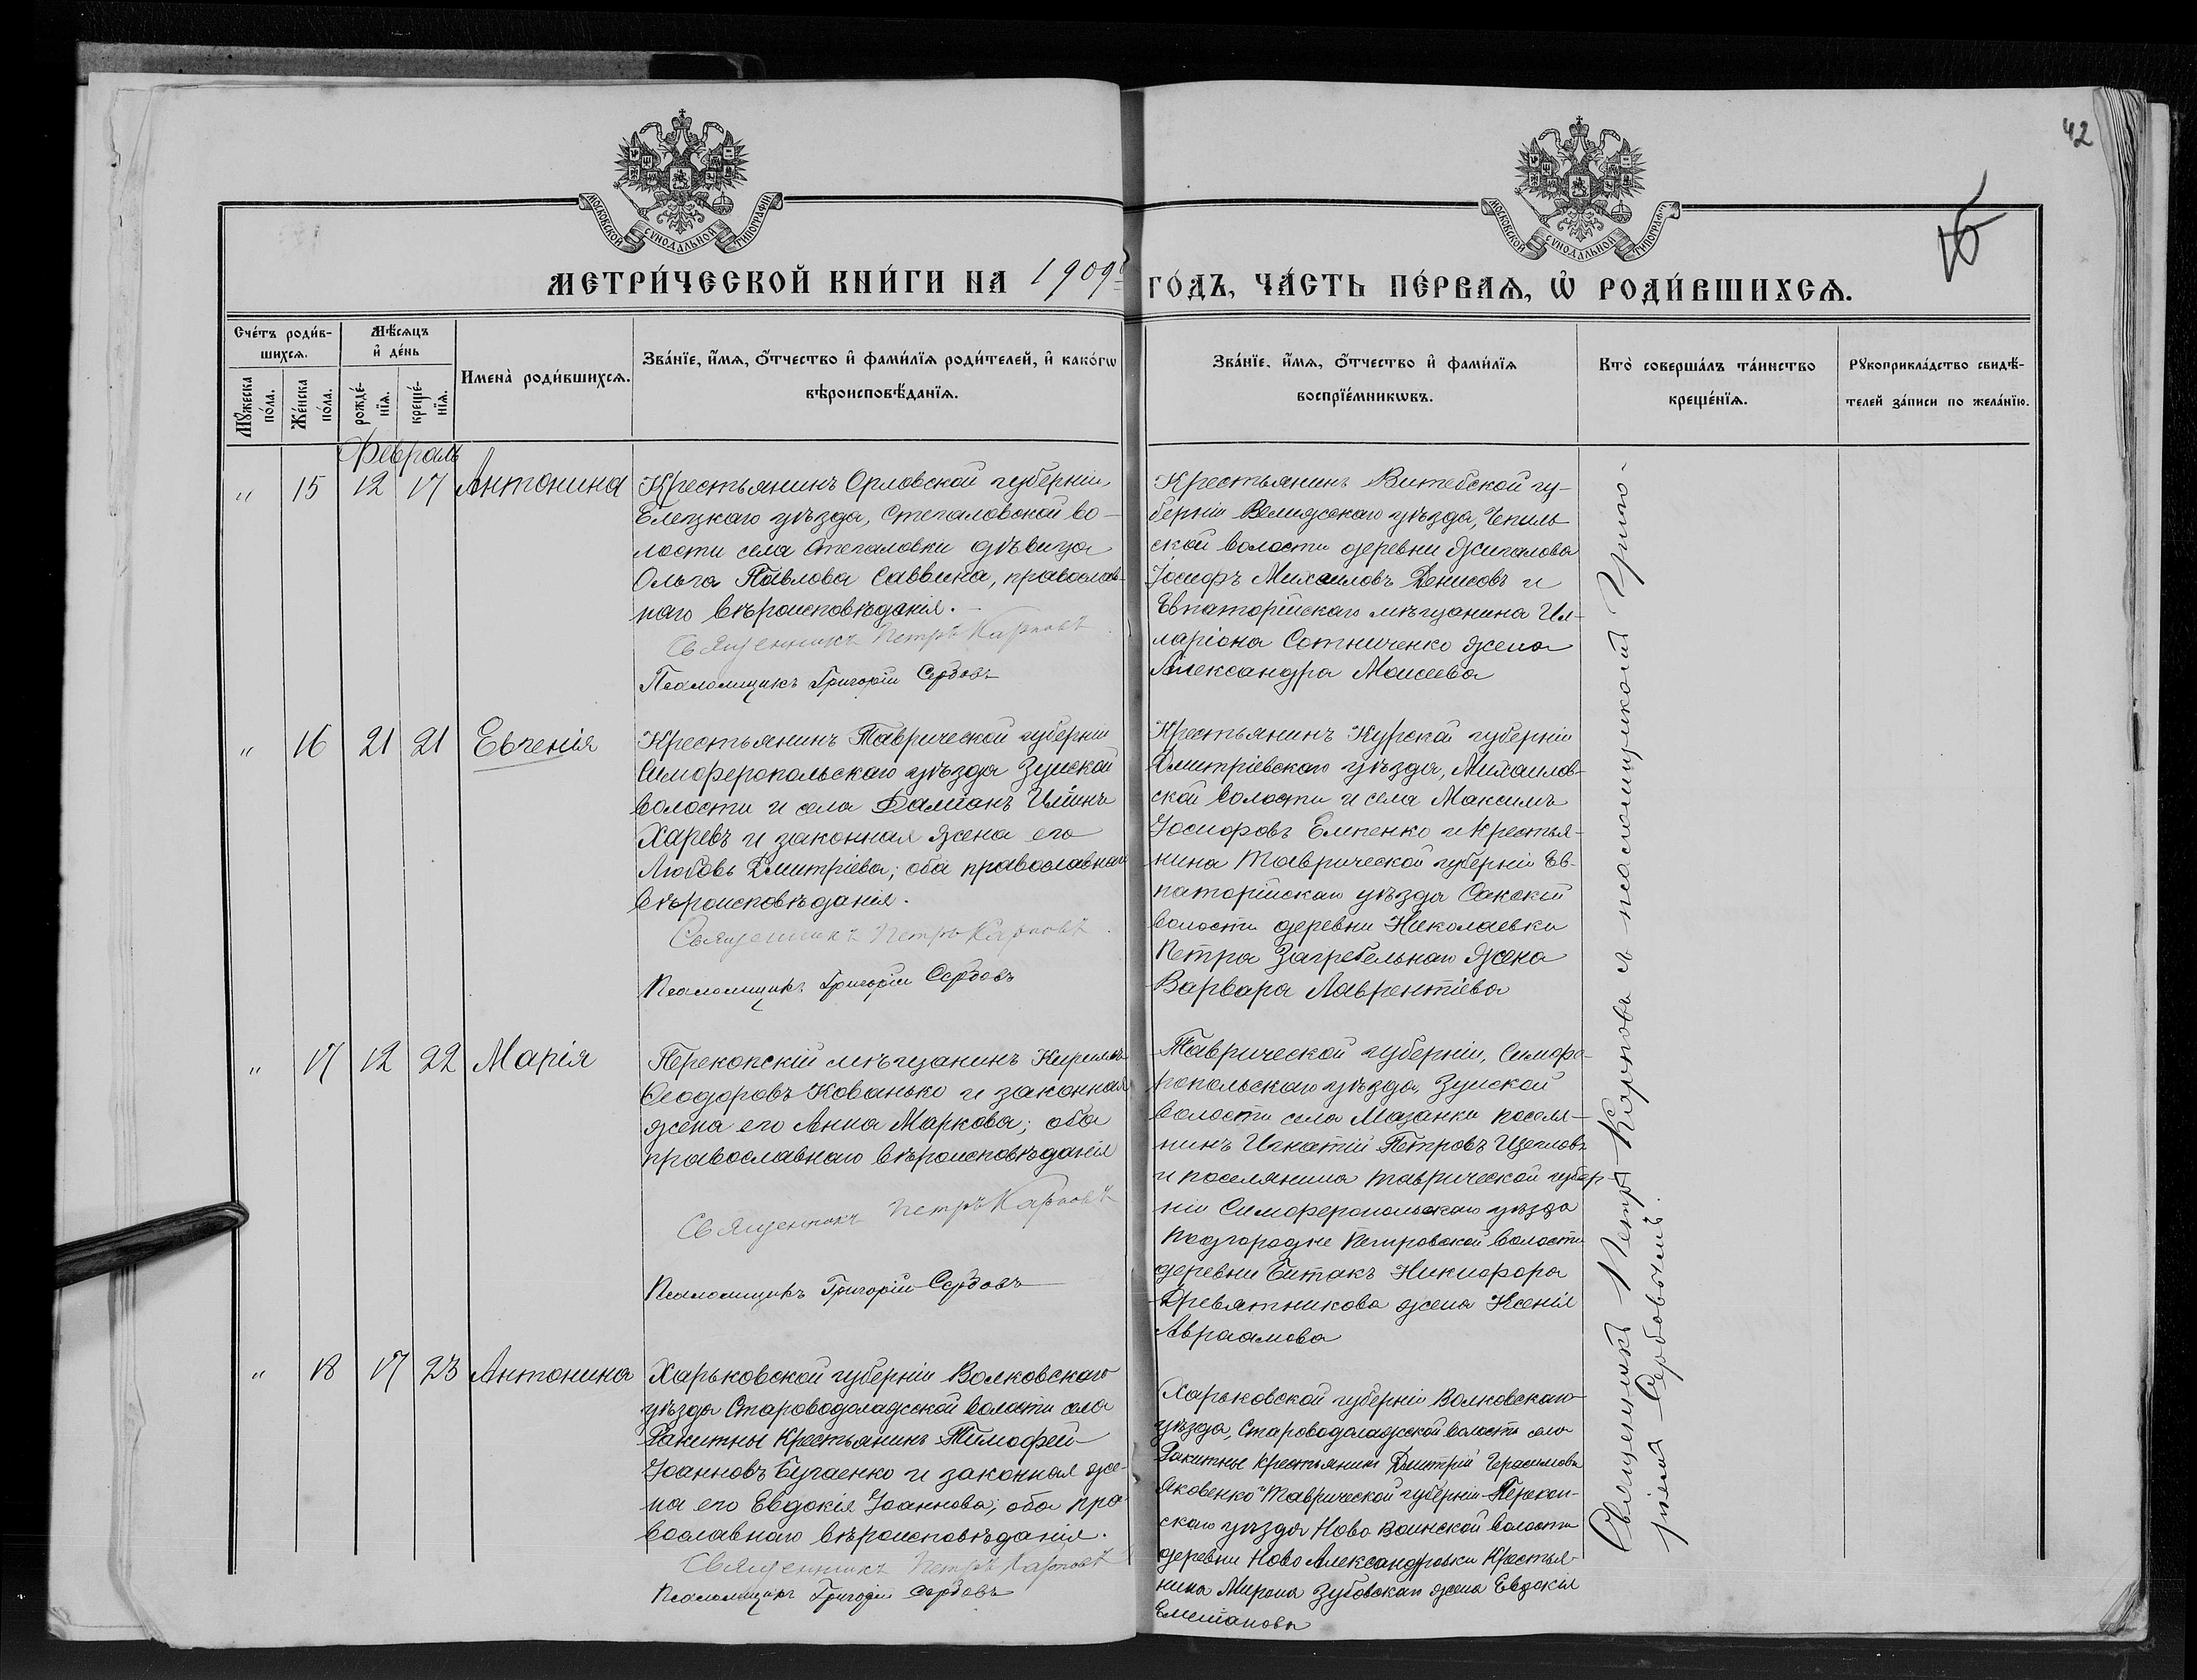 42
15
МОСКОВСКОЙ СѴНОДАЛЬНОЙ ТИПОГРАФІИ
МОСКОВСКОЙ СѴНОДАЛЬНОЙ ТИПОГРАФІИ
МЕТРИ́ЧЕСКОЙ КНИ́ГИ НА 1909й ГО́ДЪ, ЧА́СТЬ ПЕ́РВАѦ, Ѽ РОДИ́ВШИХСѦ.
Сче́тъ роди́в-
шихсѧ.
Мꙋ́жеска
по́ла.
Же́нска
по́ла.
Мѣ́сѧцъ
и҆ де́нь
рожде́-
нїѧ.
креще́-
нїѧ.
Имена̀ роди́вшихсѧ.
Зва́нїе, и҆́мѧ, ѻ҆́тчество и҆ фами́лїѧ роди́телей, и҆ како́гѡ
вѣроисповѣ́данїѧ.
Зва́нїе, и҆́мѧ, ѻ҆́тчество и҆ фами́лїѧ
воспрїе́мникѡвъ.
Кто̀ соверша́лъ та́инство
креще́нїѧ.
Рꙋкоприкла́дство свидѣ́-
телей за́писи по жела́нїю.
Февраль
" 15 12 17 Антонина
Крестьянинъ Орловской губерніи,
Елецкаго уѣзда, Стегаловской во-
лости села Стегаловки дѣвица
Ольга Павлова Саввина, православ-
наго вѣроисповѣданія.
Священникъ Петръ Карповъ.
Псаломщикъ Григорій Сербовъ
Крестьянинъ Витебской гу-
берніи Велижскаго уѣзда, Чепиль
ской волости деревни Жигалова
Іосифъ Михаиловъ Денисовъ и
Евпаторійскаго мѣщанина Ил-
ларіона Сотниченко жена
Александра Моисеева
" 16 21 21 Евгенія
Крестьянинъ Таврической губерніи
Симферопольскаго уѣзда Зуйской
волости и села Даміанъ Иліинъ
Харевъ и законная жена его
Любовь Дмитріева; оба православнаго
вѣроисповѣданія.
Священникъ Петръ Карповъ.
Псаломщикъ Григорій Сербовъ
Крестьянинъ Курской губерніи
Дмитріевскаго уѣзда, Михаилов-
ской волости и села Максимъ
Іосифовъ Емпенко и крестья-
нина Таврической губерніи Ев-
паторійскаго уѣзда Сакской
волости деревни Николаевки
Петра Загребельнаго жена
Варвара Лаврентіева
" 17 12 22 Марія
Перекопскій мѣщанинъ Кириллъ
Ѳеодоровъ Кованько и законная
жена его Анна Маркова; оба
православнаго вѣроисповѣданія
Священникъ Петръ Карповъ
Псаломщикъ Григорій Сербовъ
Таврической губерніи, Симфе-
ропольскаго уѣзда, Зуйской
волости села Мазанки поселя-
нинъ Игнатій Петровъ Щегловъ
и поселянина Таврической губер-
ніи Симферопольскаго уѣзда
Подгородне Петровской волости
деревни Битакъ Никифора
Древятникова жена Ксенія
Авраамова
" 18 17 23 Антонина
Харьковской губерніи Волковскаго
уѣзда Староводолажской волости села
Ракитны Крестьянинъ Тимофей
Іоанновъ Бугаенко и законная же-
на его Евдокія Іоаннова; оба пра
вославнаго вѣроисповѣданія.
Священникъ Петръ Карповъ
Псаломщикъ Григорій Сербовъ
Харьковской губерніи Волковскаго
уѣзда, Староводолажской волости села
Ракитны крестьянинъ Дмитрій Герасимовъ
Яковенко и Таврической губерніи Перекоп-
скаго уѣзда Ново Воинской волости
деревни Ново Александровки Крестья-
нина Мирона Зубовскаго жена Евдокія
Священникъ Петръ Карповъ и псаломщикомъ Григо-
ріемъ Сербовымъ.